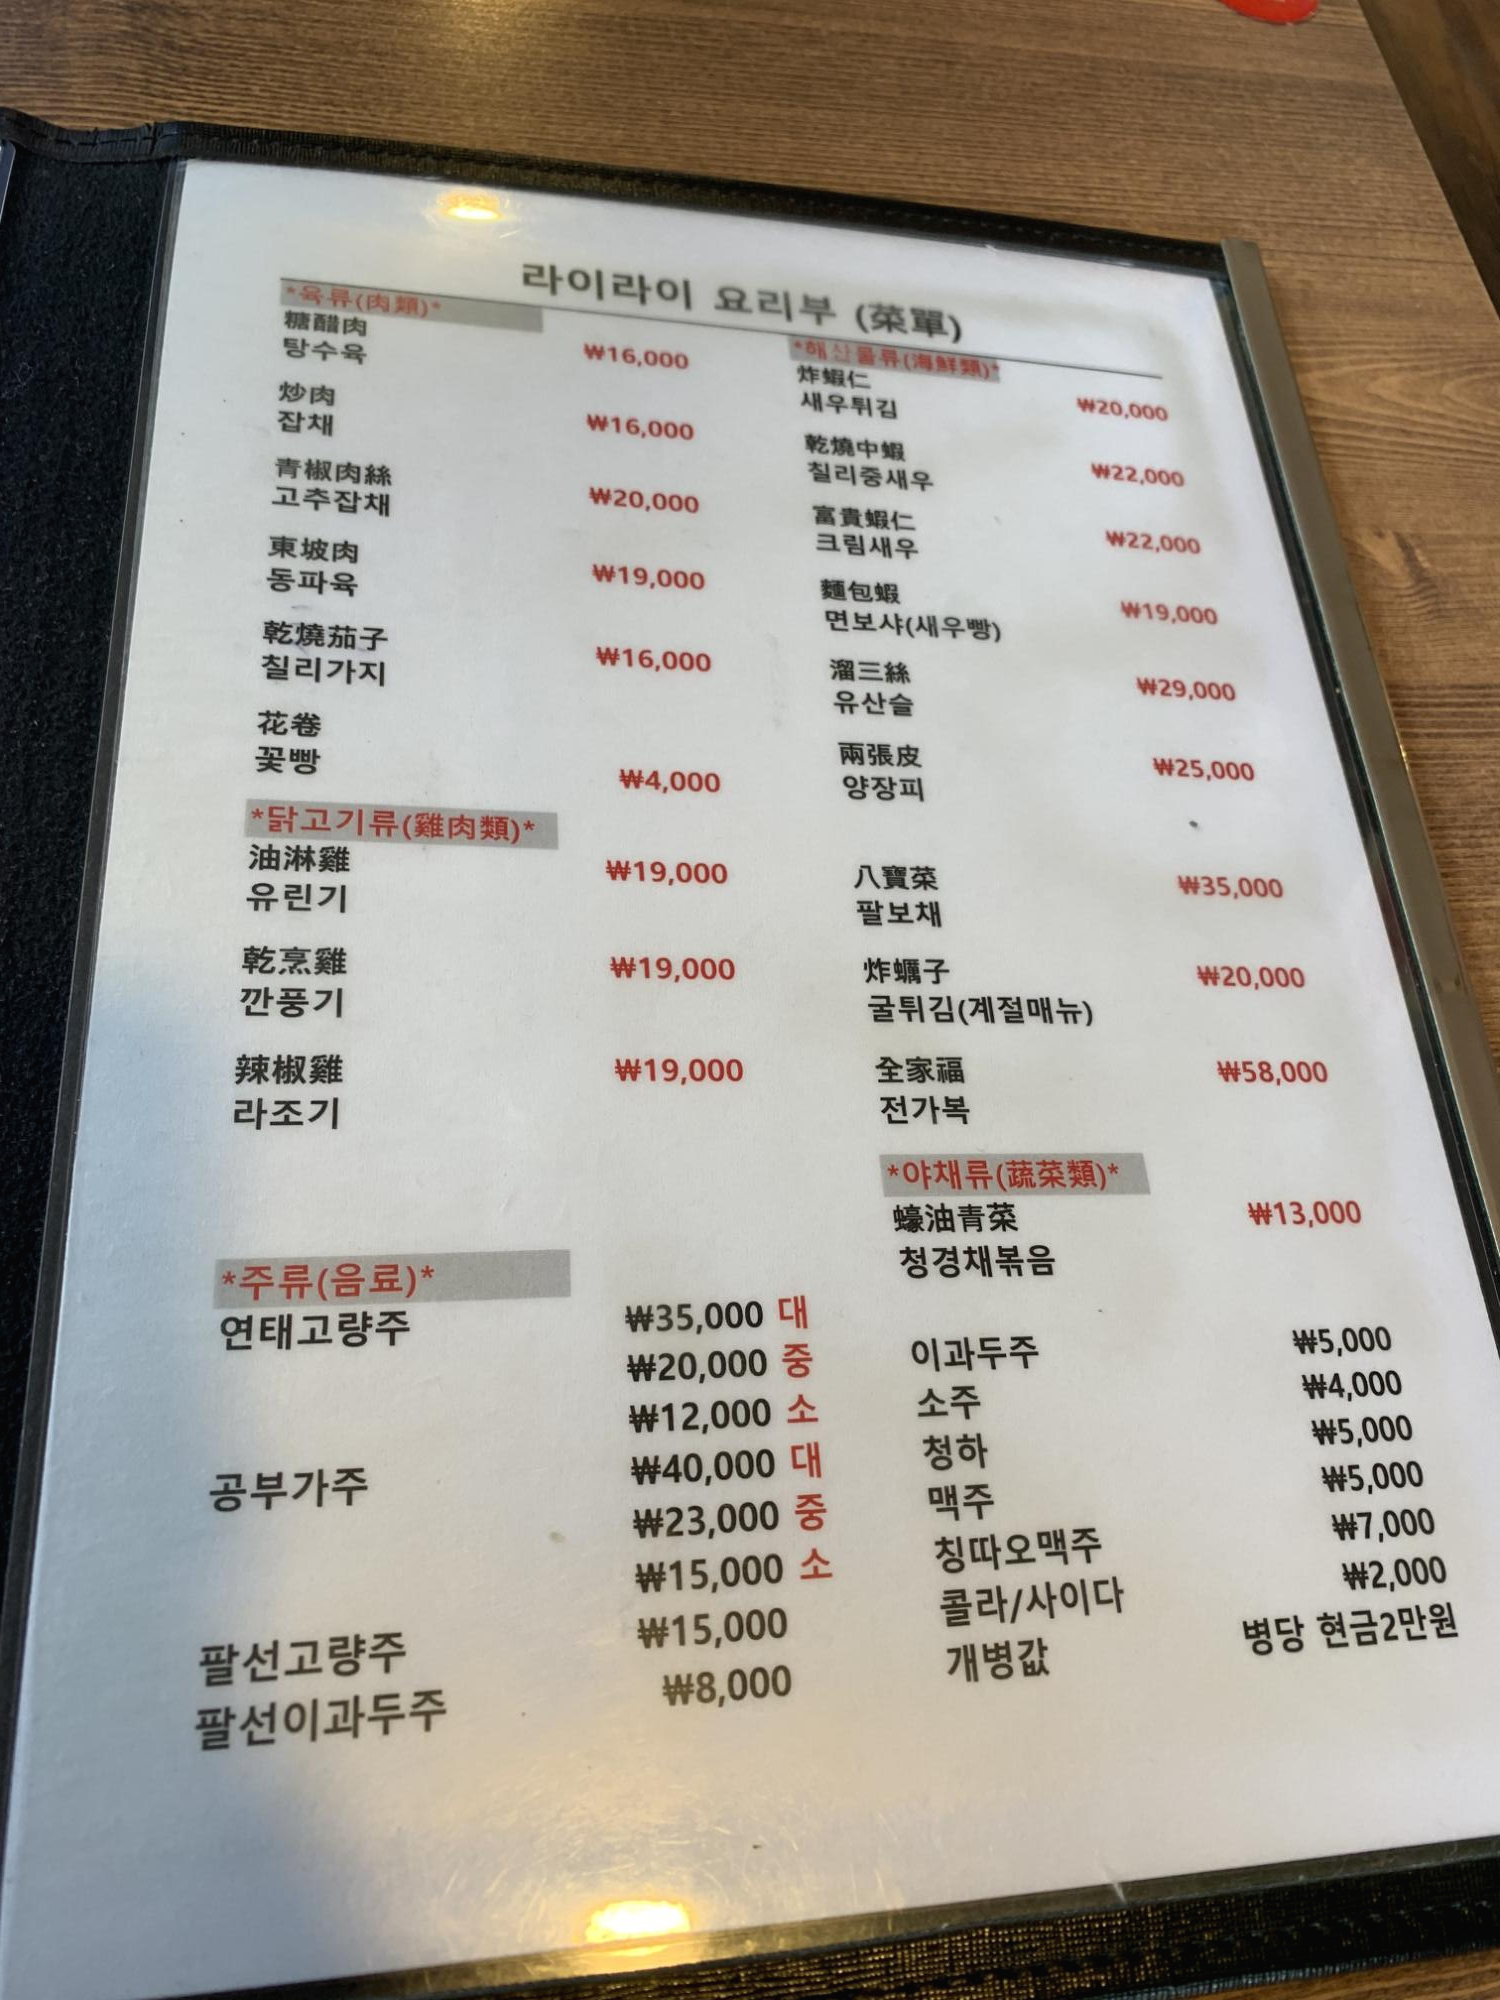 라이라이 요리부 (菜單)
*육류(肉類)*
糖醋肉
탕수육 ₩16,000
炒肉
잡채 ₩16,000
青椒肉絲
고추잡채 ₩20,000
東坡肉
동파육 ₩19,000
乾燒茄子
칠리가지 ₩16,000
花卷
꽃빵 ₩4,000
*닭고기류(雞肉類)*
油淋雞 ₩19,000
유린기
乾烹雞 ₩19,000
깐풍기
辣椒雞 ₩19,000
라조기
*해산물류(海鮮類)*
炸蝦仁
새우튀김 ₩20,000
乾燒中蝦
칠리중새우 ₩22,000
富貴蝦仁
크림새우 ₩22,000
麵包蝦
면보샤(새우빵) ₩19,000
溜三絲
유산슬 ₩29,000
兩張皮
양장피 ₩25,000
八寶菜 ₩35,000
팔보채
炸蠣子 ₩20,000
굴튀김(계절매뉴)
全家福 ₩58,000
전가복
*야채류(蔬菜類)*
蠔油青菜 ₩13,000
청경채볶음
*주류(음료)*
연태고량주 ₩35,000 대
₩20,000 중
₩12,000 소
공부가주 ₩40,000 대
₩23,000 중
₩15,000 소
팔선고량주 ₩15,000
팔선이과두주 ₩8,000
이과두주 ₩5,000
소주 ₩4,000
청하 ₩5,000
맥주 ₩5,000
칭따오맥주 ₩7,000
콜라/사이다 ₩2,000
개병값 병당 현금2만원